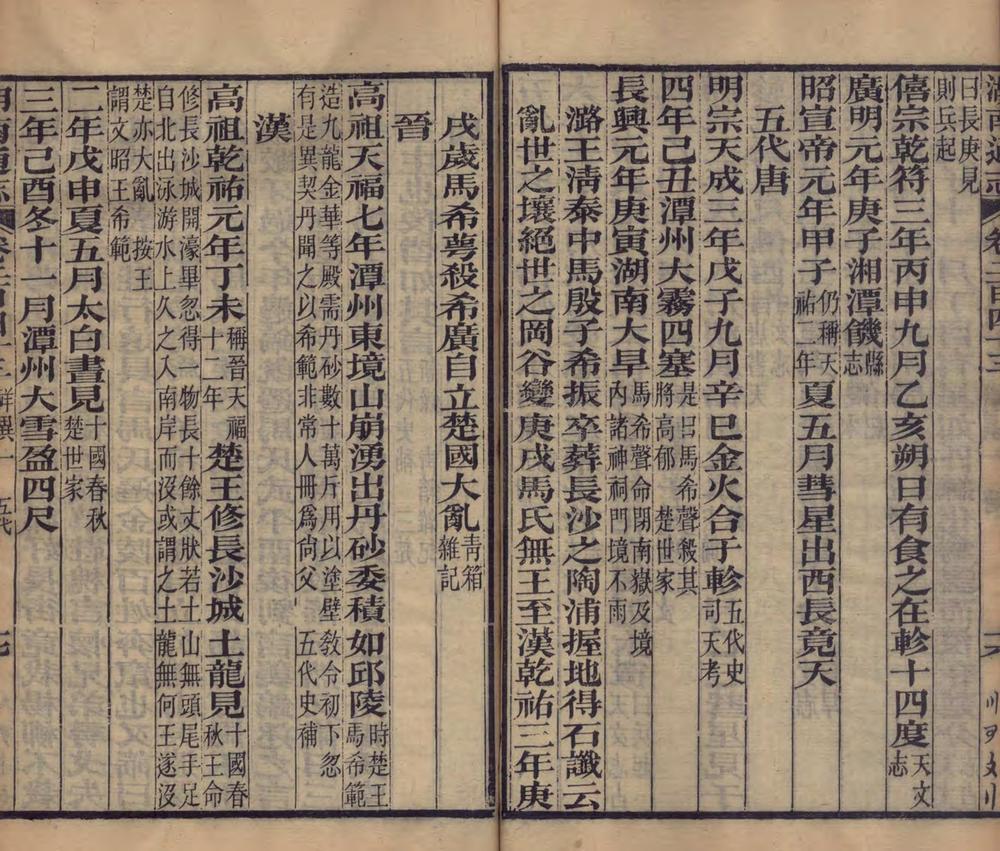 曰長庚見則兵起
僖宗乾符三年丙申九月乙亥朔日有食之在軫十四度天文志
廣明元年庚子湘潭饑縣志
昭宣帝元年甲子仍稱天祐二年夏五月彗星出西長竟天
五代唐
明宗天成三年戊子九月辛巳金火合于軫五代史司天考
四年己丑潭州大霧四塞是日馬希聲殺其將高郁 楚世家
長興元年庚寅湖南大旱馬希聲命閉南嶽及境內諸神祠門境不雨
潞王淸泰中馬殷子希振卒葬長沙之陶浦握地得石讖云
亂世之壤絕世之岡谷變庚戌馬氏無王至漢乾祐三年庚
戌歲馬希萼殺希廣自立楚國大亂靑箱雜記
晉
高祖天福七年潭州東境山崩湧出丹砂委積如邱陵時楚王馬希範
造九龍金華等殿需丹砂數十萬斤用以塗壁敎令初下忽有是異契丹聞之以希範非常人冊爲尙父 五代史補
漢
高祖乾祐元年丁未稱晉天福十二年楚王修長沙城土龍見十國春秋王命
修長沙城開濠畢忽得一物長十餘丈狀若土山無頭尾手足自北出泳游水上久之入南岸而沒或謂之土龍無何王遂沒
楚亦大亂 按王謂文昭王希範
二年戊申夏五月太白晝見十國春秋楚世家
三年己酉冬十一月潭州大雪盈四尺
祥異一 五代
七